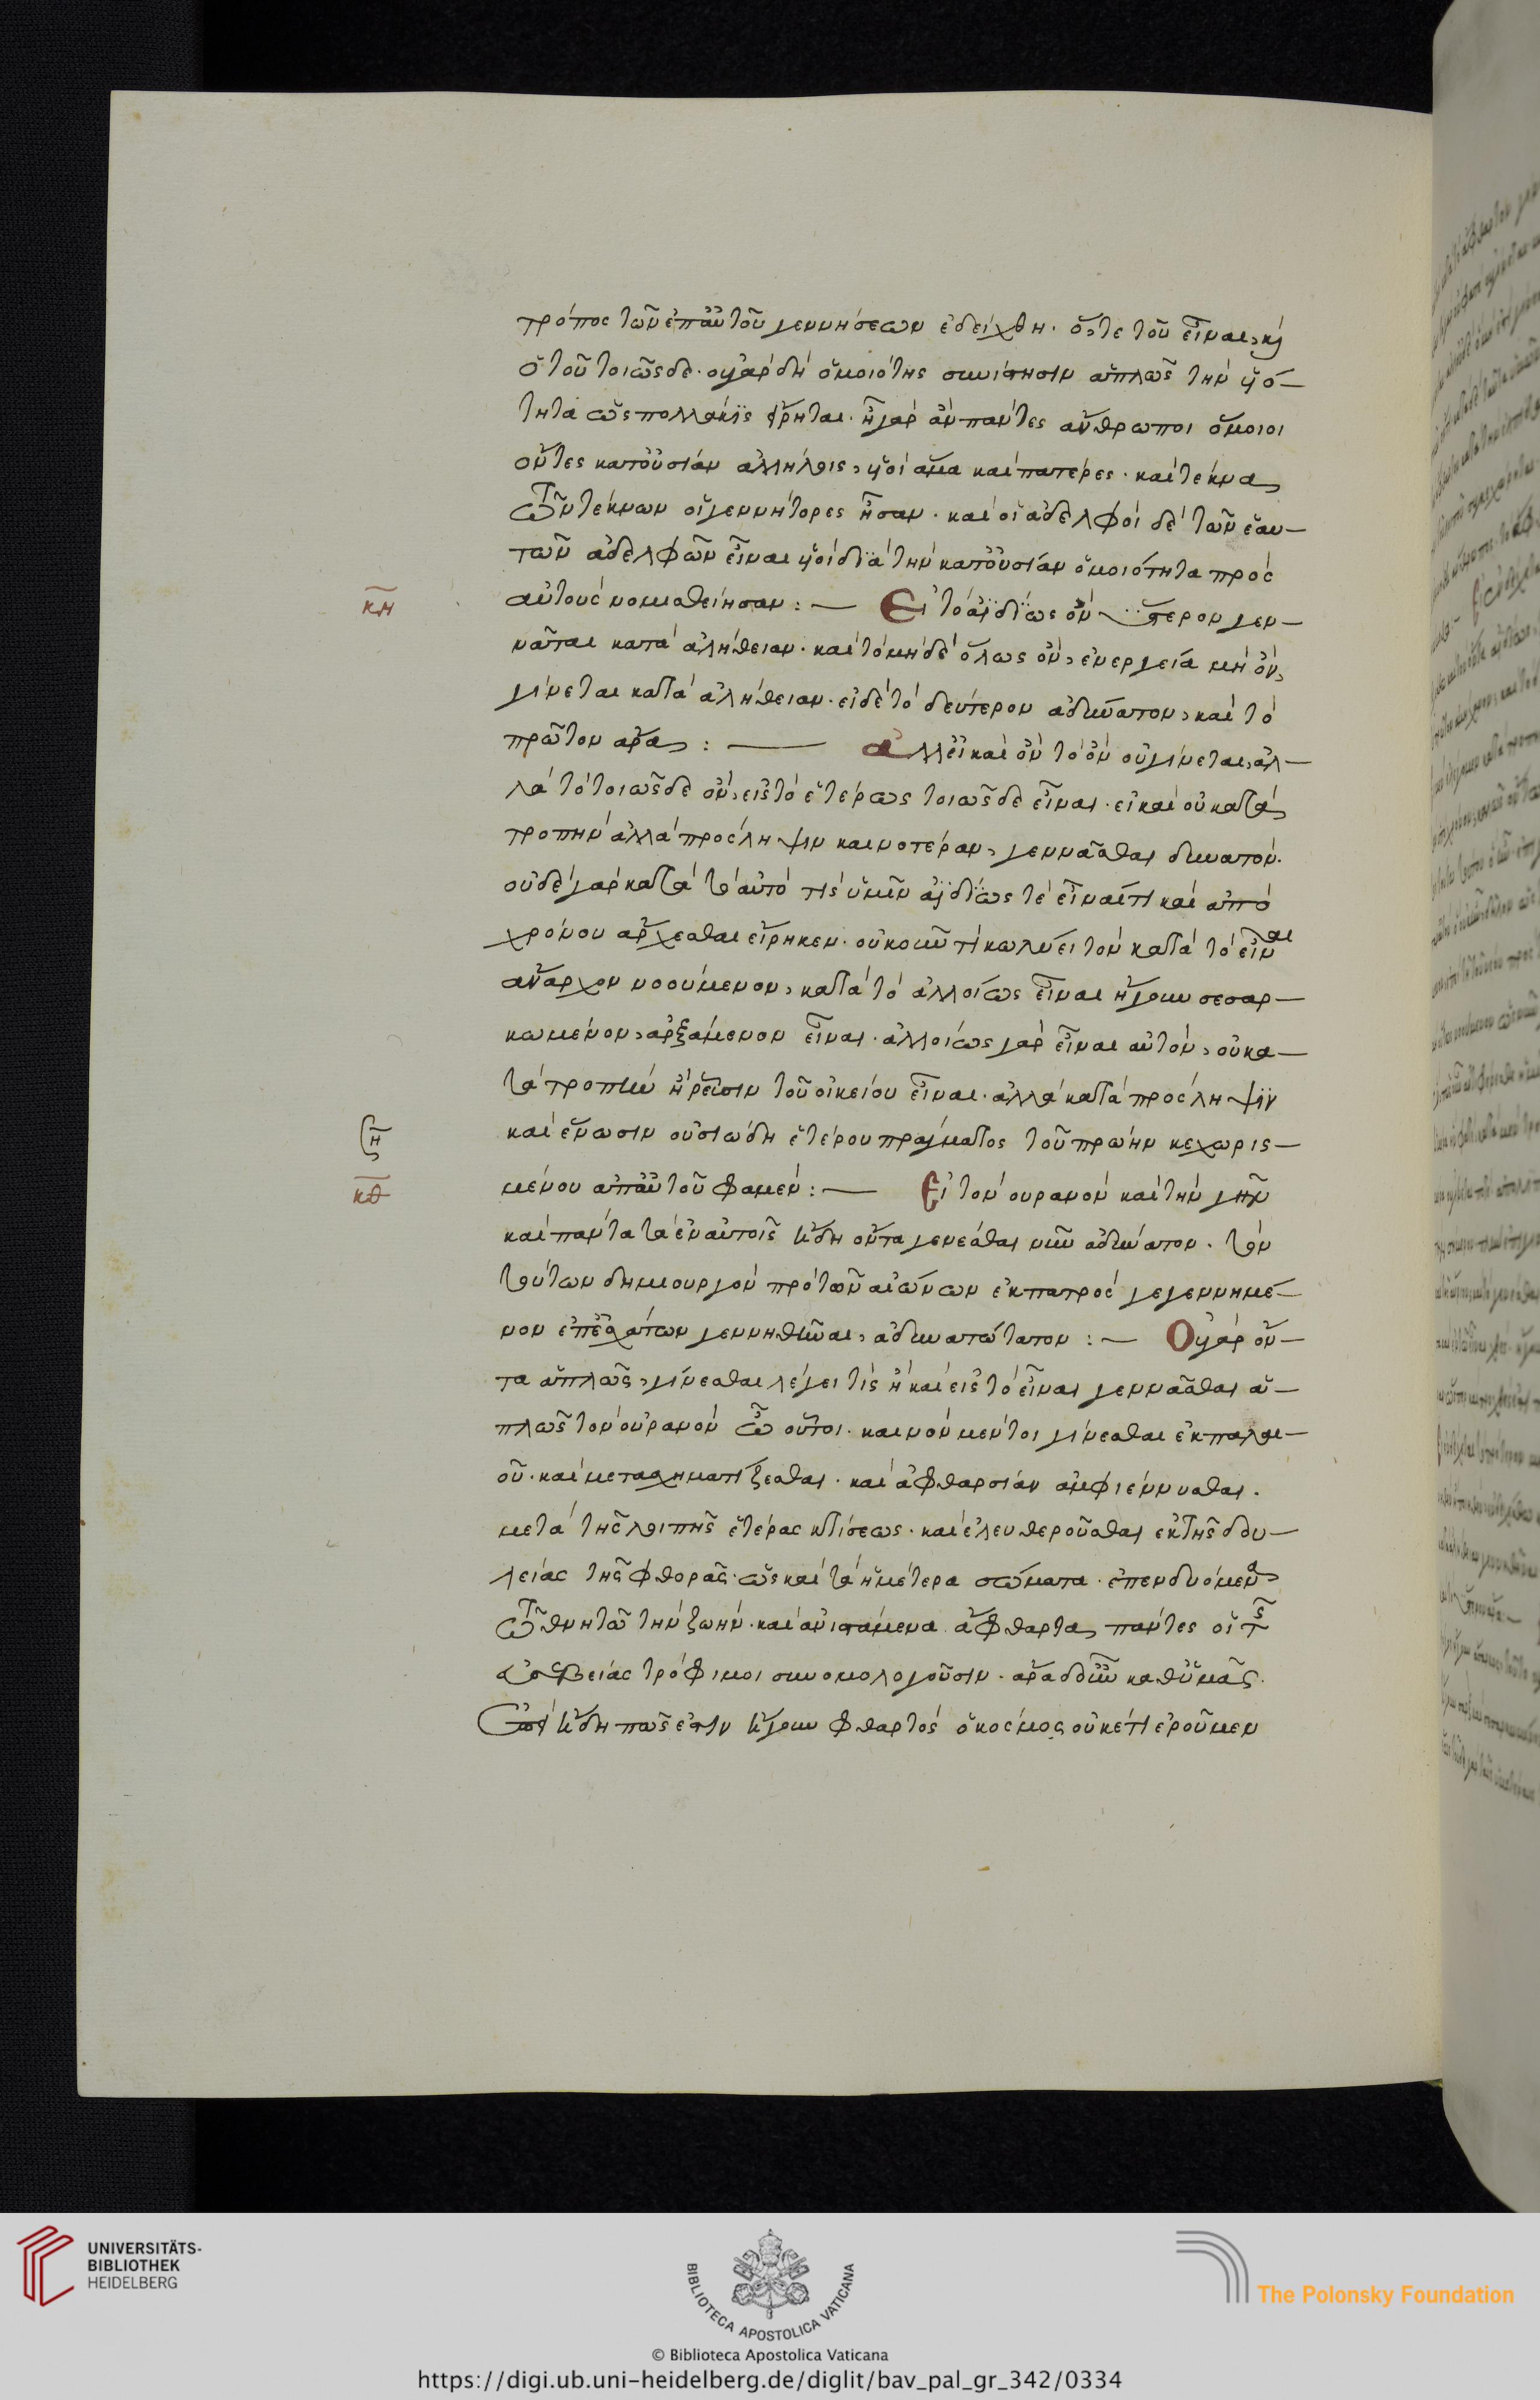 τρόπος τῶν ἐπ' αὐτοῦ γεννήσεων ἐδείχθη. ὅ, τε τοῦ εἶναι, κ(αὶ)
ὁ τοῦ τοιῶσδε. οὐ γὰρ δὴ ὁμοιότης συνίστησιν ἁπλῶς τὴν υἱό-
τητα ὡς πολλάκις εἴρηται. ἦ γὰρ ἂν πάντες ἄνθρωποι ὅμοιοι
ὄντες κατ' οὐσίαν ἀλλήλοις, υἱοὶ ἅμα καὶ πατέρες. καὶ τέκνα
τῶν τέκνων οἱ γεννήτορες ἦσαν. καὶ οἱ ἀδελφοὶ δὲ τῶν ἑαυ-
τῶν ἀδελφῶν εἶναι υἱοὶ διὰ τὴν κατ' οὐσίαν ὁμοιότητα πρὸς
κη
αὐτοὺς νομισθείησαν : — Εἰ τὸ ἀϊδίως ὂν ὕστερον γεν-
νᾶται κατὰ ἀλήθειαν. καὶ τὸ μηδὲ ὅλως ὂν, ἐνεργεία μὴ ὂν,
γίνεται κατὰ ἀλήθειαν. εἰ δὲ τὸ δεύτερον ἀδύνατον, καὶ τὸ
πρῶτον ἄρα : — ἀλλ' εἰ καὶ ὂν τὸ ὂν οὐ γίνεται, ἀλ-
λὰ τὸ τοιῶσδε ὂν, εἰς τὸ ἑτέρως τοιῶσδε εἶναι. εἰ καὶ οὐ κατὰ
τροπὴν ἀλλὰ πρόσληψιν καινοτέραν, γεννᾶσθαι δυνατόν.
οὐδὲ γὰρ κατὰ τὸ αὐτό τις ὑμῖν ἀϊδίως τὲ εἶναί τι καὶ ἀπὸ
χρόνου ἄρχεσθαι εἴρηκεν. οὐκοῦν τί κωλύει τὸν κατὰ τὸ εἶναι
ἄναρχον νοούμενον, κατὰ τὸ ἀλλοίως εἶναι ἤγουν σεσαρ-
κωμένον, ἀρξάμενον εἶναι. ἀλλοίως γὰρ εἶναι αὐτὸν, οὐ κα-
τὰ τροπὴν ἢ ῥεῦσιν τοῦ οἰκείου εἶναι. ἀλλὰ κατὰ πρόσληψιν
ση
καὶ ἕνωσιν οὐσιώδη ἑτέρου πράγματος τοῦ πρώην κεχωρισ-
κθ
μένου ἀπ' αὐτοῦ φαμέν : — Εἰ τὸν ουρανὸν καὶ τὴν γῆν
καὶ πάντα τὰ ἐν αὐτοῖς ἤδη ὄντα γενέσθαι νῦν ἀδύνατον. τὸν
τούτων δημιουργὸν πρὸ τῶν αἰώνων ἐκ πατρὸς γεγεννημέ-
νον ἐπ' ἐσχάτων γεννηθῆναι, ἀδυνατώτατον : — Οὐ γὰρ ὄν-
τα ἁπλῶς, γίνεσθαι λέγει τίς ἢ καὶ εἰς τὸ εἶναι γεννᾶσθαι ἁ-
πλῶς τὸν οὐρανὸν ὦ οὗτοι. καινὸν μέντοι γίνεσθαι ἐκ παλαι-
οῦ. καὶ μετασχηματίζεσθαι. καὶ ἀφθαρσίαν ἀμφιέννυσθαι.
μετὰ τῆς λοιπῆς ἑτέρας κτίσεως. καὶ ἐλευθεροῦσθαι ἐκ τῆς δου-
λείας τῆς φθορᾶς. ὡς καὶ τὰ ἡμέτερα σώματα. ἐπενδυόμενα
τῶ θνητῶ τὴν ζωήν. καὶ ἀνιστάμενα ἄφθαρτα, πάντες οἱ τῆς
εὐσεβείας τρόφιμοι συνομολογοῦσιν. ἆρ' ἂν οὖν καθ' ὑμᾶς
ἐπεὶ ἤδη πῶς ἐστιν ἤγουν φθαρτὸς ὁ κόσμος οὐκέτι ἐροῦμεν
UNIVERSITÄTS-
BIBLIOTHEK
HEIDELBERG
BIBLIOTECA APOSTOLICA VATICANA
The Polonsky Foundation
© Biblioteca Apostolica Vaticana
https://digi.ub.uni-heidelberg.de/diglit/bav_pal_gr_342/0334